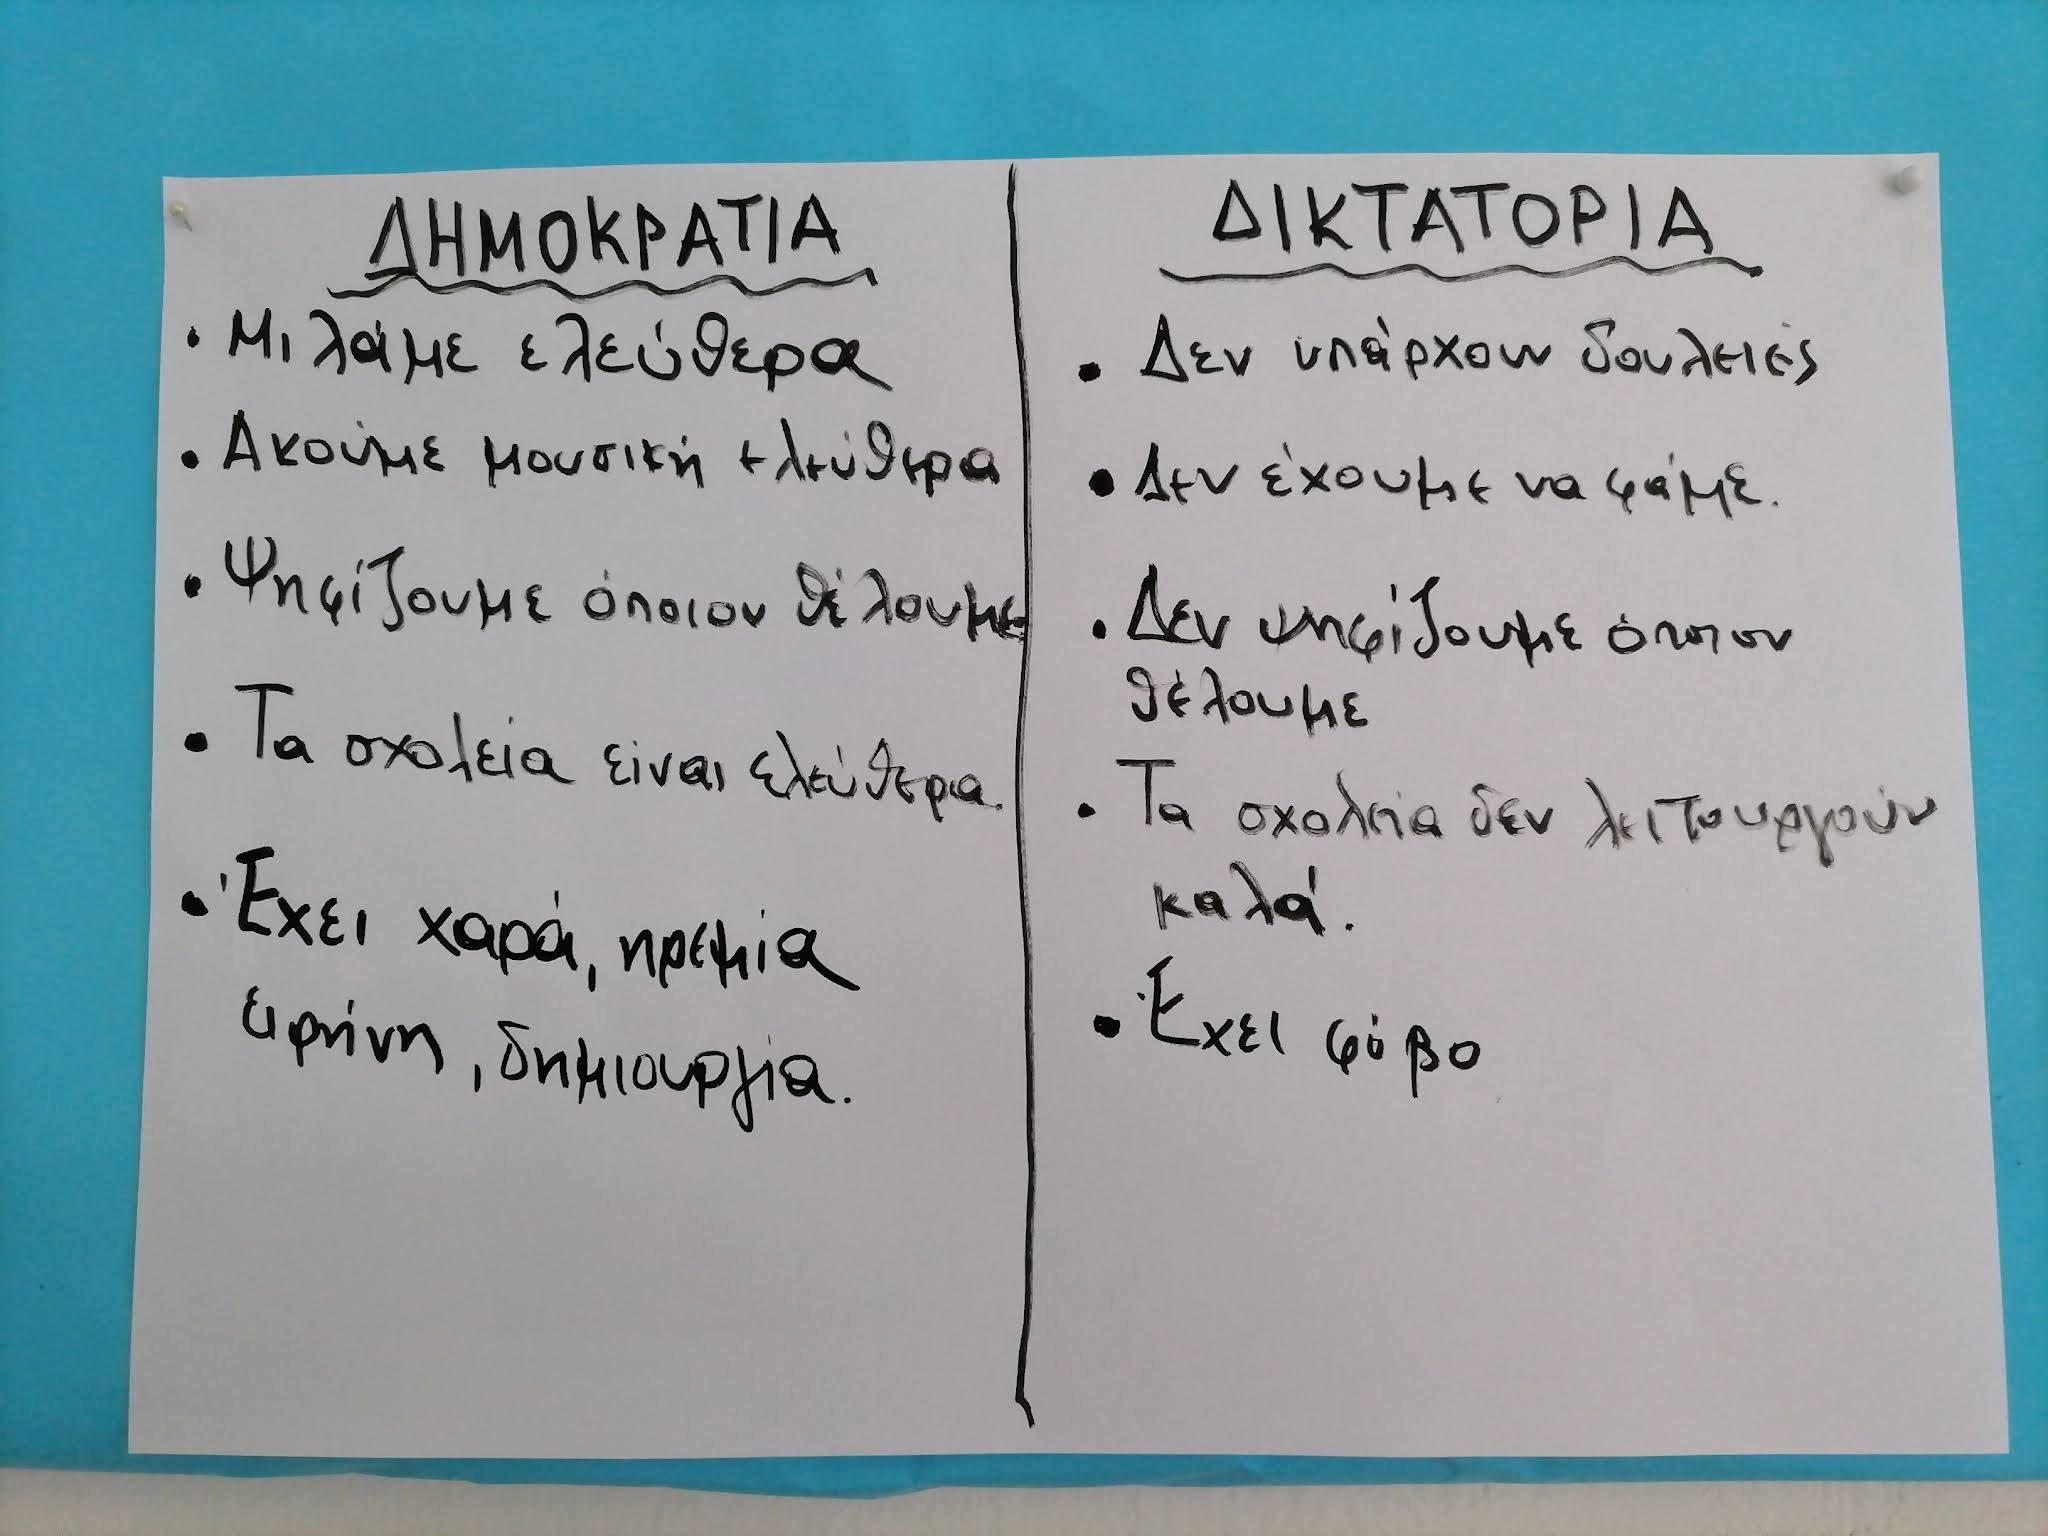 ΔΗΜΟΚΡΑΤΙΑ
• Μιλάμε ελεύθερα
• Ακούμε μουσική ελεύθερα
• Ψηφίζουμε όποιον θέλουμε
• Τα σχολεία είναι ελεύθερα.
• Έχει χαρά, ηρεμία
ειρήνη, δημιουργία.
ΔΙΚΤΑΤΟΡΙΑ
• Δεν υπάρχουν δουλειές
• Δεν έχουμε να φάμε.
• Δεν ψηφίζουμε όποιον
θέλουμε
• Τα σχολεία δεν λειτουργούν
καλά.
• Έχει φόβο